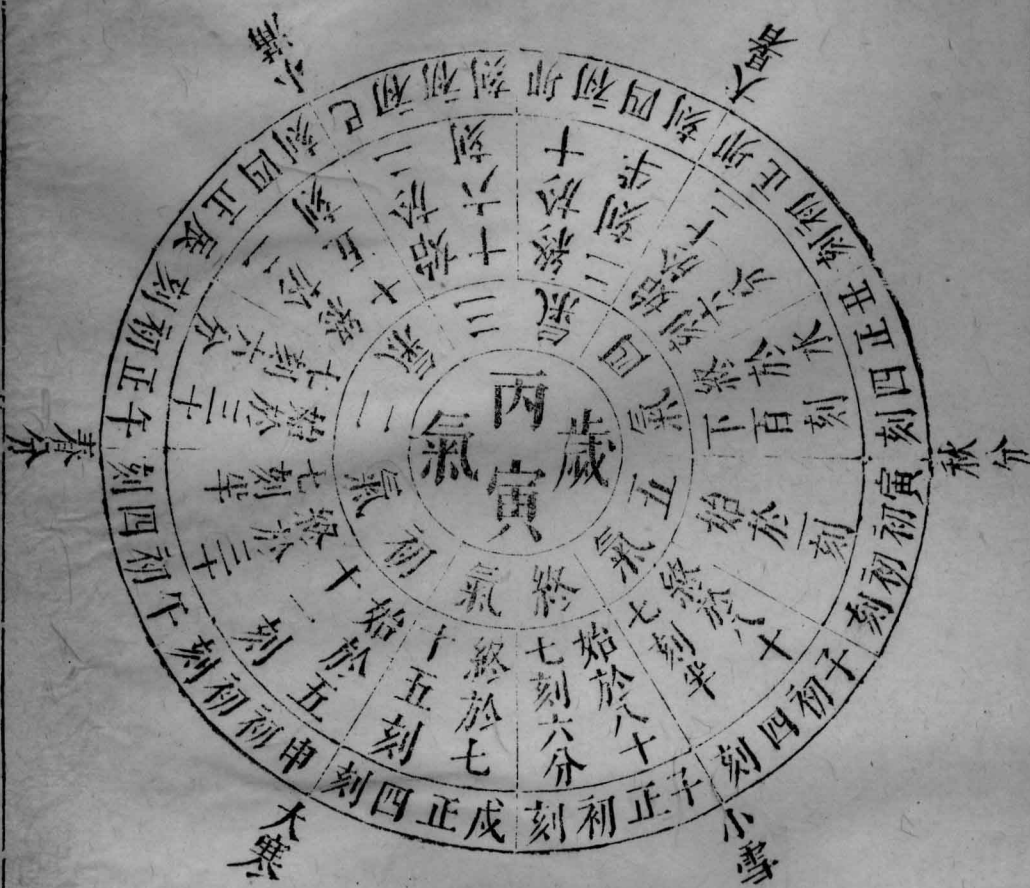 丙寅
歲氣
初氣
二氣
三氣
四氣
五氣
終氣
始於五
十一刻
終於三十
七刻半
始於三十
七刻六分
終於二
十五刻
始於二
十六刻
終於十
二刻半
始於十二
刻六分
終於水
下百刻
始於一刻
終於八十
七刻半
始於八十
七刻六分
終於七
十五刻
申初初刻
午初四刻
午正初刻
辰正四刻
巳初初刻
卯初四刻
卯正初刻
丑正四刻
寅初初刻
子初四刻
子正初刻
戌正四刻
大寒
春分
小滿
大暑
秋分
小雪